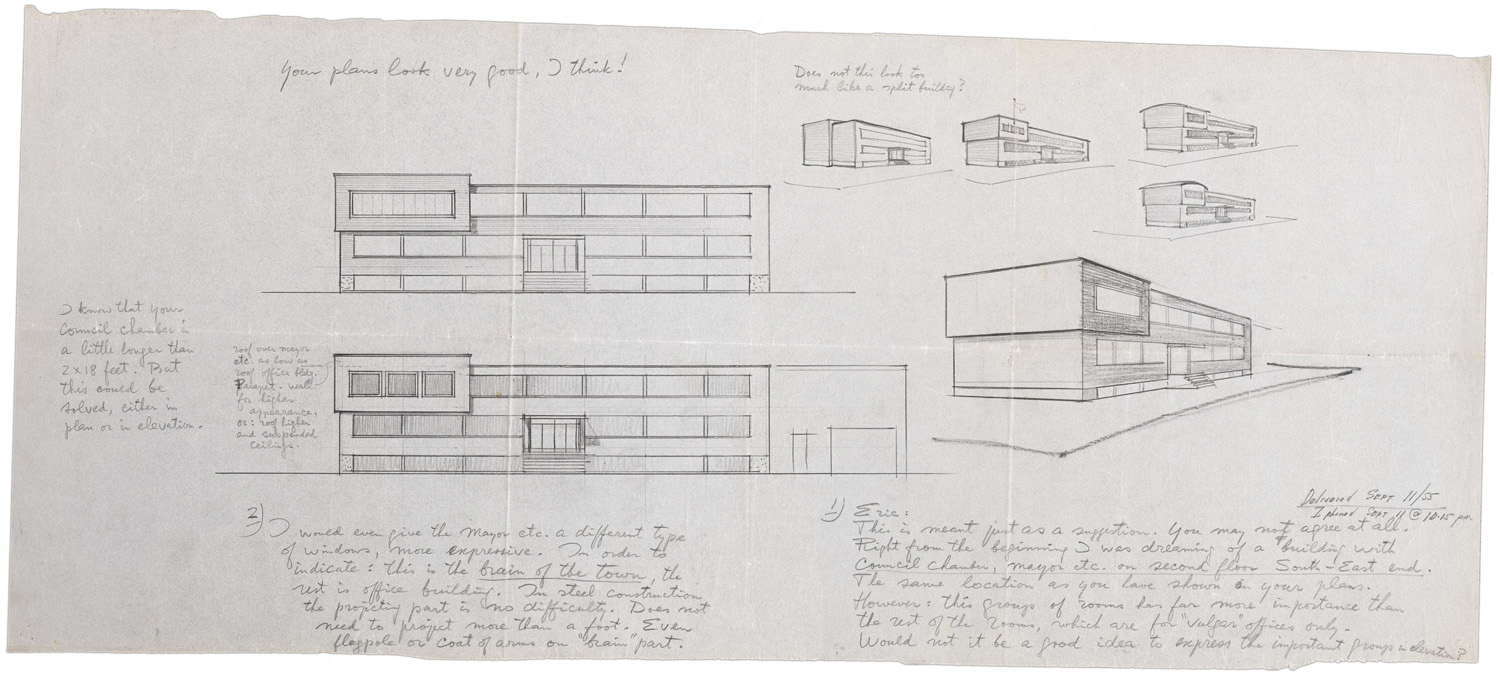 Your plans look very good, I think!
Does not this look too
much like a split building?
I know that your
Council chamber is
a little longer than
2x18 feet. But
this could be
solved, either in
plan or in elevation.
roof over mayor
etc. as low as
roof office bldg.
Parapet-wall
for higher
appearance,
or: roof higher
and suspended
ceilings.
Delivered Sept 11/55
I phoned Sept 11 @ 10.15 pm
1) Eric:
This is meant just as a suggestion. You may not agree at all.
Right from the beginning I was dreaming of a building with
Council Chamber, mayor etc. on second floor South-East end.
The same location as you have shown on your plans.
However: this groups of rooms has far more importance than
the rest of the rooms, which are for "vulgar" offices only.
Would not it be a good idea to express the important groups in elevation?
2) I would even give the Mayor etc. a different type
of windows, more expressive. In order to
indicate: this is the brain of the town, the
rest is office building. In steel construction
the projecting part is no difficulty. Does not
need to project more than a foot. Even
flagpole or coat of arms on "brain" part.